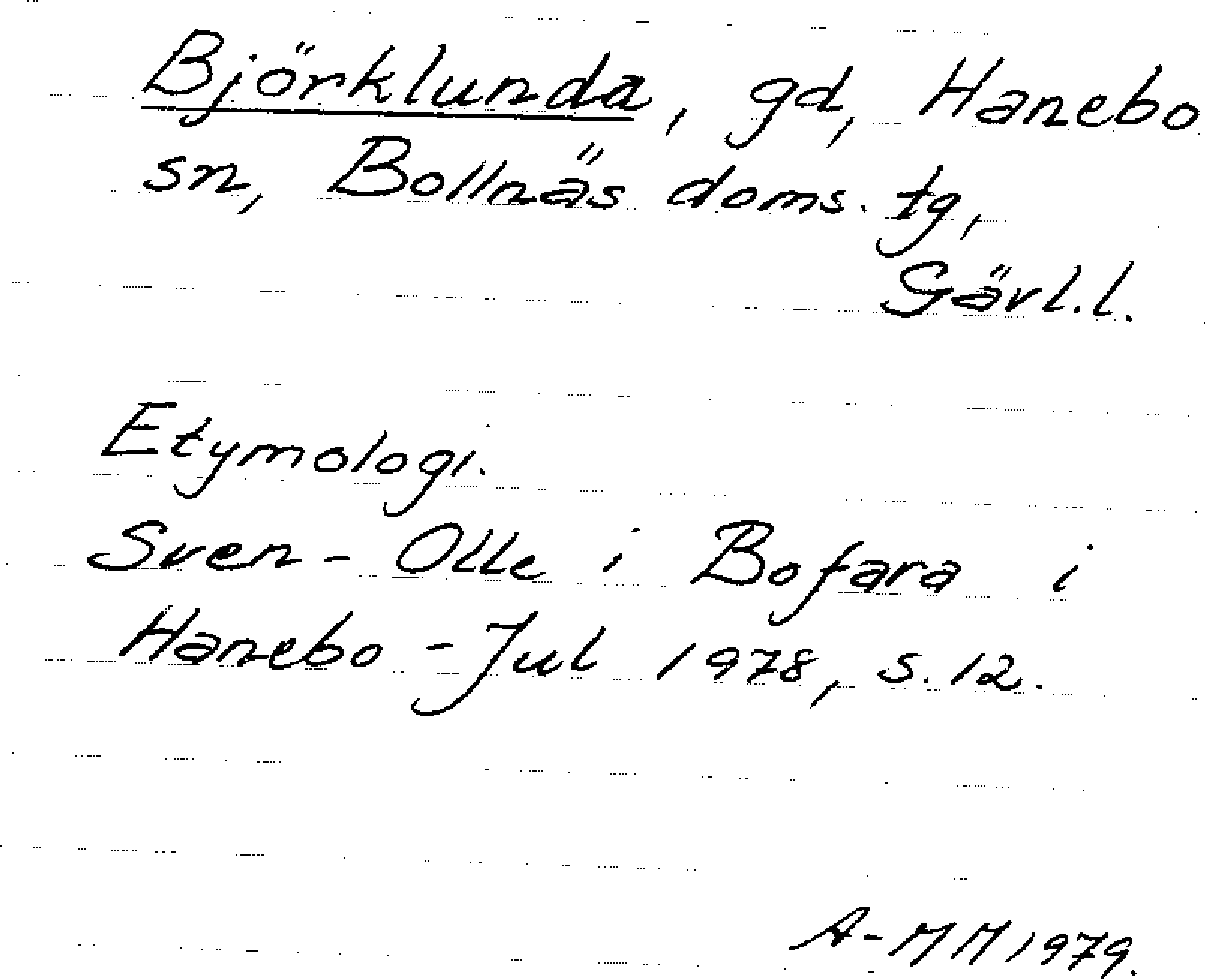 Björklunda, gd, Hanebo
sn, Bollnäs doms. tg,
Gävl.l.
Etymologi.
Sven-Olle i Bofara i
Hanebo-Jul 1978, s.12.
A-MM 1979.